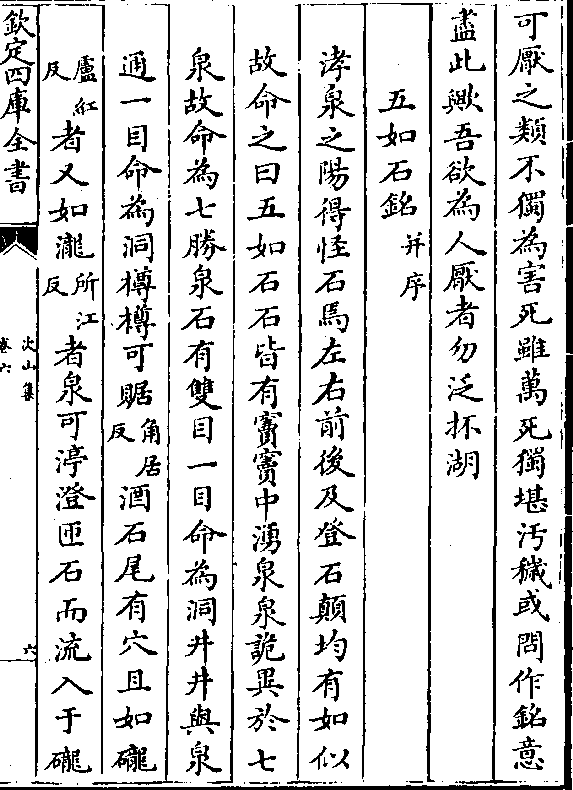 可厭之類不獨為害死雖萬死獨堪汚穢或問作銘意
盡此歟吾欲為人厭者勿泛抔湖
五如石銘并序
浯泉之陽得怪石焉左右前後及登石顛均有如似
故命之曰五如石石皆有竇竇中湧泉泉詭異於七
泉故命為七勝泉石有雙目一目命為洞井井與泉
通一目命為洞樽樽可䝻角居反酒石尾有穴且如礲
廬紅反者又如瀧所江反者泉可渟澄匝石而流入于礲
欽定四庫全書
次山集
卷六
六